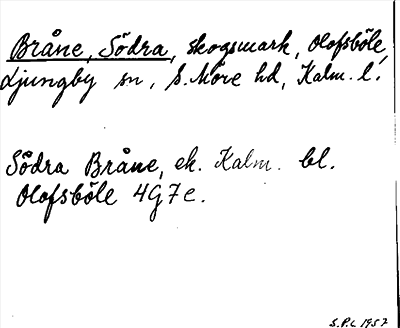 Bråne, Södra, skogsmark, Olofsböle,
Ljungby sn, S. Möre hd, Kalm. l.
Södra Bråne, ek. Kalm. bl.
Olofsböle 4G7e.
S.P.L 1957